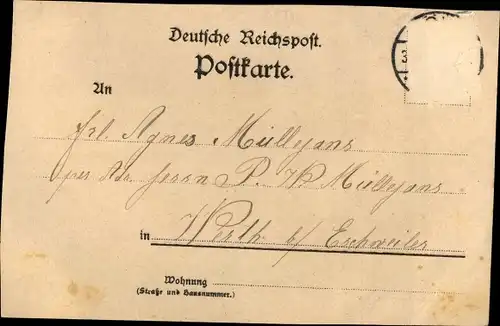 Deutsche Reichspost.
Postkarte.
An
Frl. Agnes Müllejans
per Adr. Herrn P. W. Müllejans
in Werth b/ Eschweiler
Wohnung
(Straße und Hausnummer.)